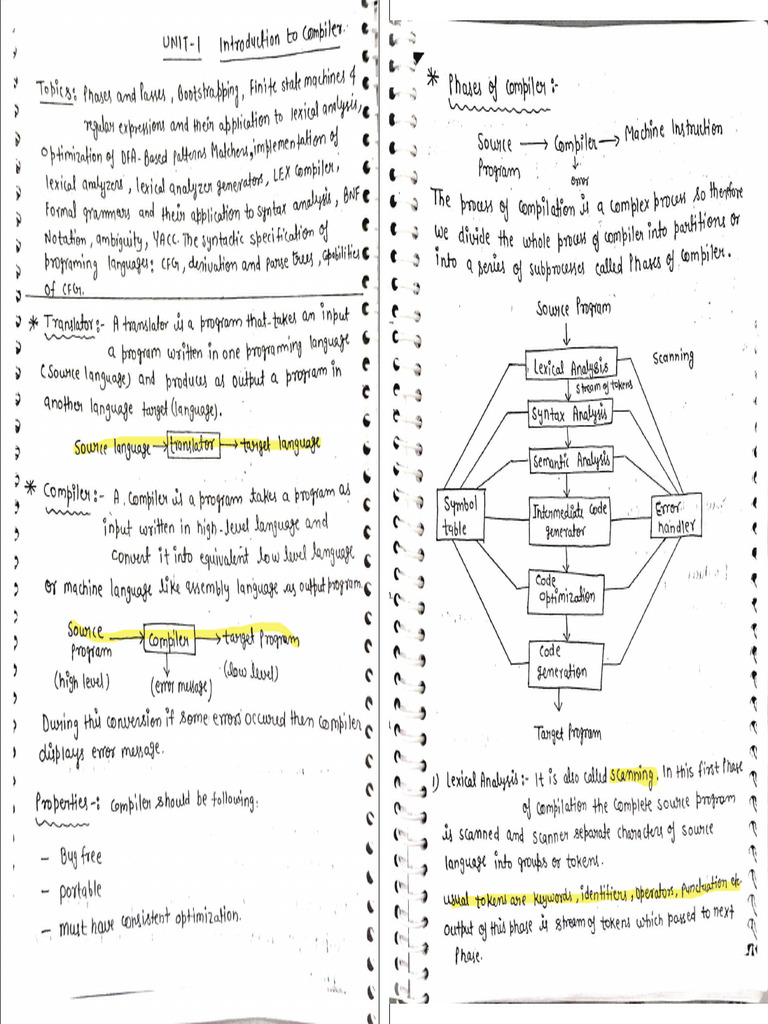 UNIT-1 Introduction to Compiler.
Topics: Phases and Passes, Bootstrapping, Finite state machines &
regular expressions and their application to lexical analysis,
Optimization of DFA-Based patterns Matchers, implementation of
lexical analyzers, lexical analyzer generators, LEX Compiler,
Formal grammars and their application to syntax analysis, BNF
Notation, ambiguity, YACC. The syntactic specification of
programing languages: CFG, derivation and parse trees, capabilities
of CFG.
* Translator:- A translator is a program that takes an input
a program written in one programing language
(Source language) and produces as output a program in
another language target (language).
Source language → translator → target language
* Compiler:- A Compiler is a program takes a program as
input written in high-level language and
convert it into equivalent low level language
or machine language like assembly language as output program.
Source program → Compiler → target Program
(high level) (error message) (low level)
During this conversion if some errors occured then compiler
displays error message.
Properties-: Compiler should be following:
- Bug free
- portable
- must have consistent optimization.
* Phases of Compiler:-
Source Program → Compiler → Machine Instruction
error
The process of compilation is a complex process so therefore
we divide the whole process of compiler into partitions or
into a series of subprocesses called Phases of Compiler.
Source Program
Lexical Analysis
Scanning
Stream of tokens
Syntax Analysis
Semantic Analysis
Symbol table
Intermediate Code generator
Error handler
Code Optimization
Code generation
Target Program
1) Lexical Analysis:- It is also called scanning. In this first Phase
of compilation the complete source program
is scanned and scanner separate characters of source
language into groups or tokens.
usual tokens are keywords, identifiers, operators, punctuation etc
output of this phase is stream of tokens which passed to next
Phase.